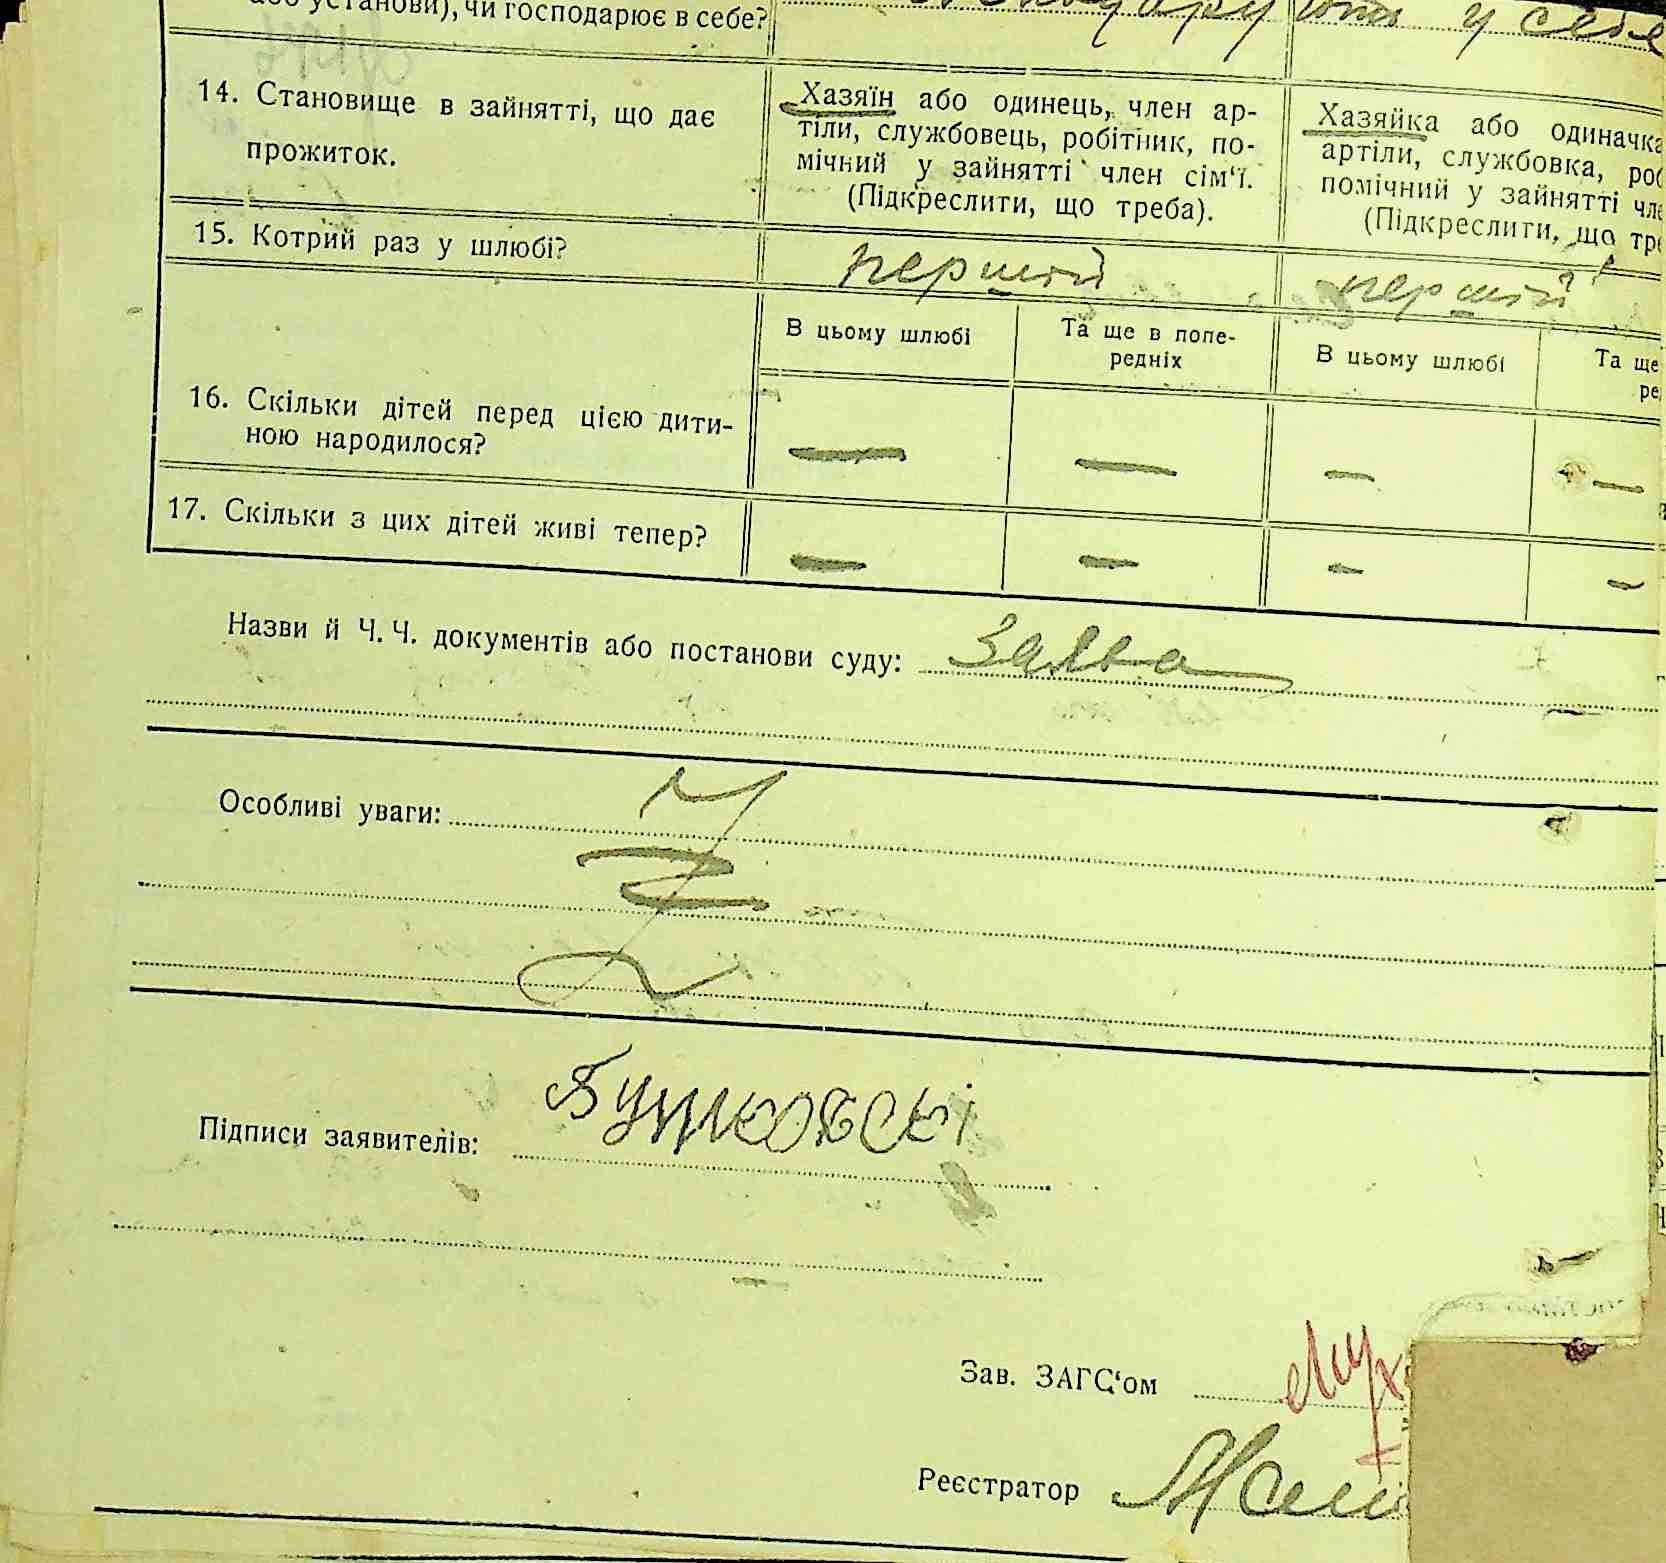 або установи), чи господарює в себе?
у себе
14. Становище в зайнятті, що дає
прожиток.
Хазяїн або одинець, член ар-
тіли, службовець, робітник, по-
мічний у зайнятті член сім'ї.
(Підкреслити, що треба).
Хазяйка або одиначка
артіли, службовка, роб
помічний у зайнятті чле
(Підкреслити, що тре
15. Котрий раз у шлюбі?
перший
перший
В цьому шлюбі
Та ще в попе-
редніх
В цьому шлюбі
Та ще
ре
16. Скільки дітей перед цією дити-
ною народилося?
— — — —
17. Скільки з цих дітей живі тепер?
— — — —
Назви й Ч. Ч. документів або постанови суду: Заява
Особливі уваги:
Підписи заявителів:
Зав. ЗАГС'ом
Реєстратор